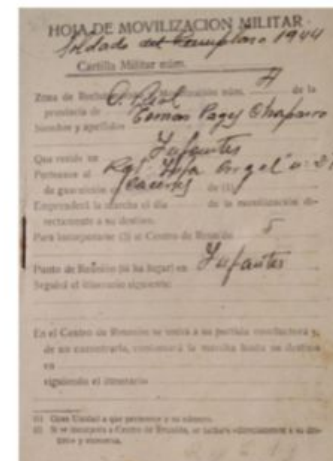 HOJA DE MOVILIZACION MILITAR
Soldado del Reemplazo 1944
Cartilla Militar núm.
Zona de Reclutamiento y Movilización núm. de la
provincia de C. Real
Nombre y apellidos Roman Pages Chaparro
Que reside en Infantes
Pertenece al Rgt. Inf. Argel n. 2
de guarnición en Cáceres de (1)
Emprenderá la marcha el día de la movilización di-
rectamente a su destino.
Para incorporarse (2) al Centro de Reunión 5
Punto de Reunión (si ha lugar) en Infantes
Seguirá el itinerario siguiente:
En el Centro de Reunión se unirá a su partida conductora y,
de no encontrarla, continuará la marcha hasta su destino
en
siguiendo el itinerario
(1) Gran Unidad a que pertenece y su número.
(2) Si se incorpora a Centro de Reunión, se tachará «directamente a su des-
tino» y viceversa.